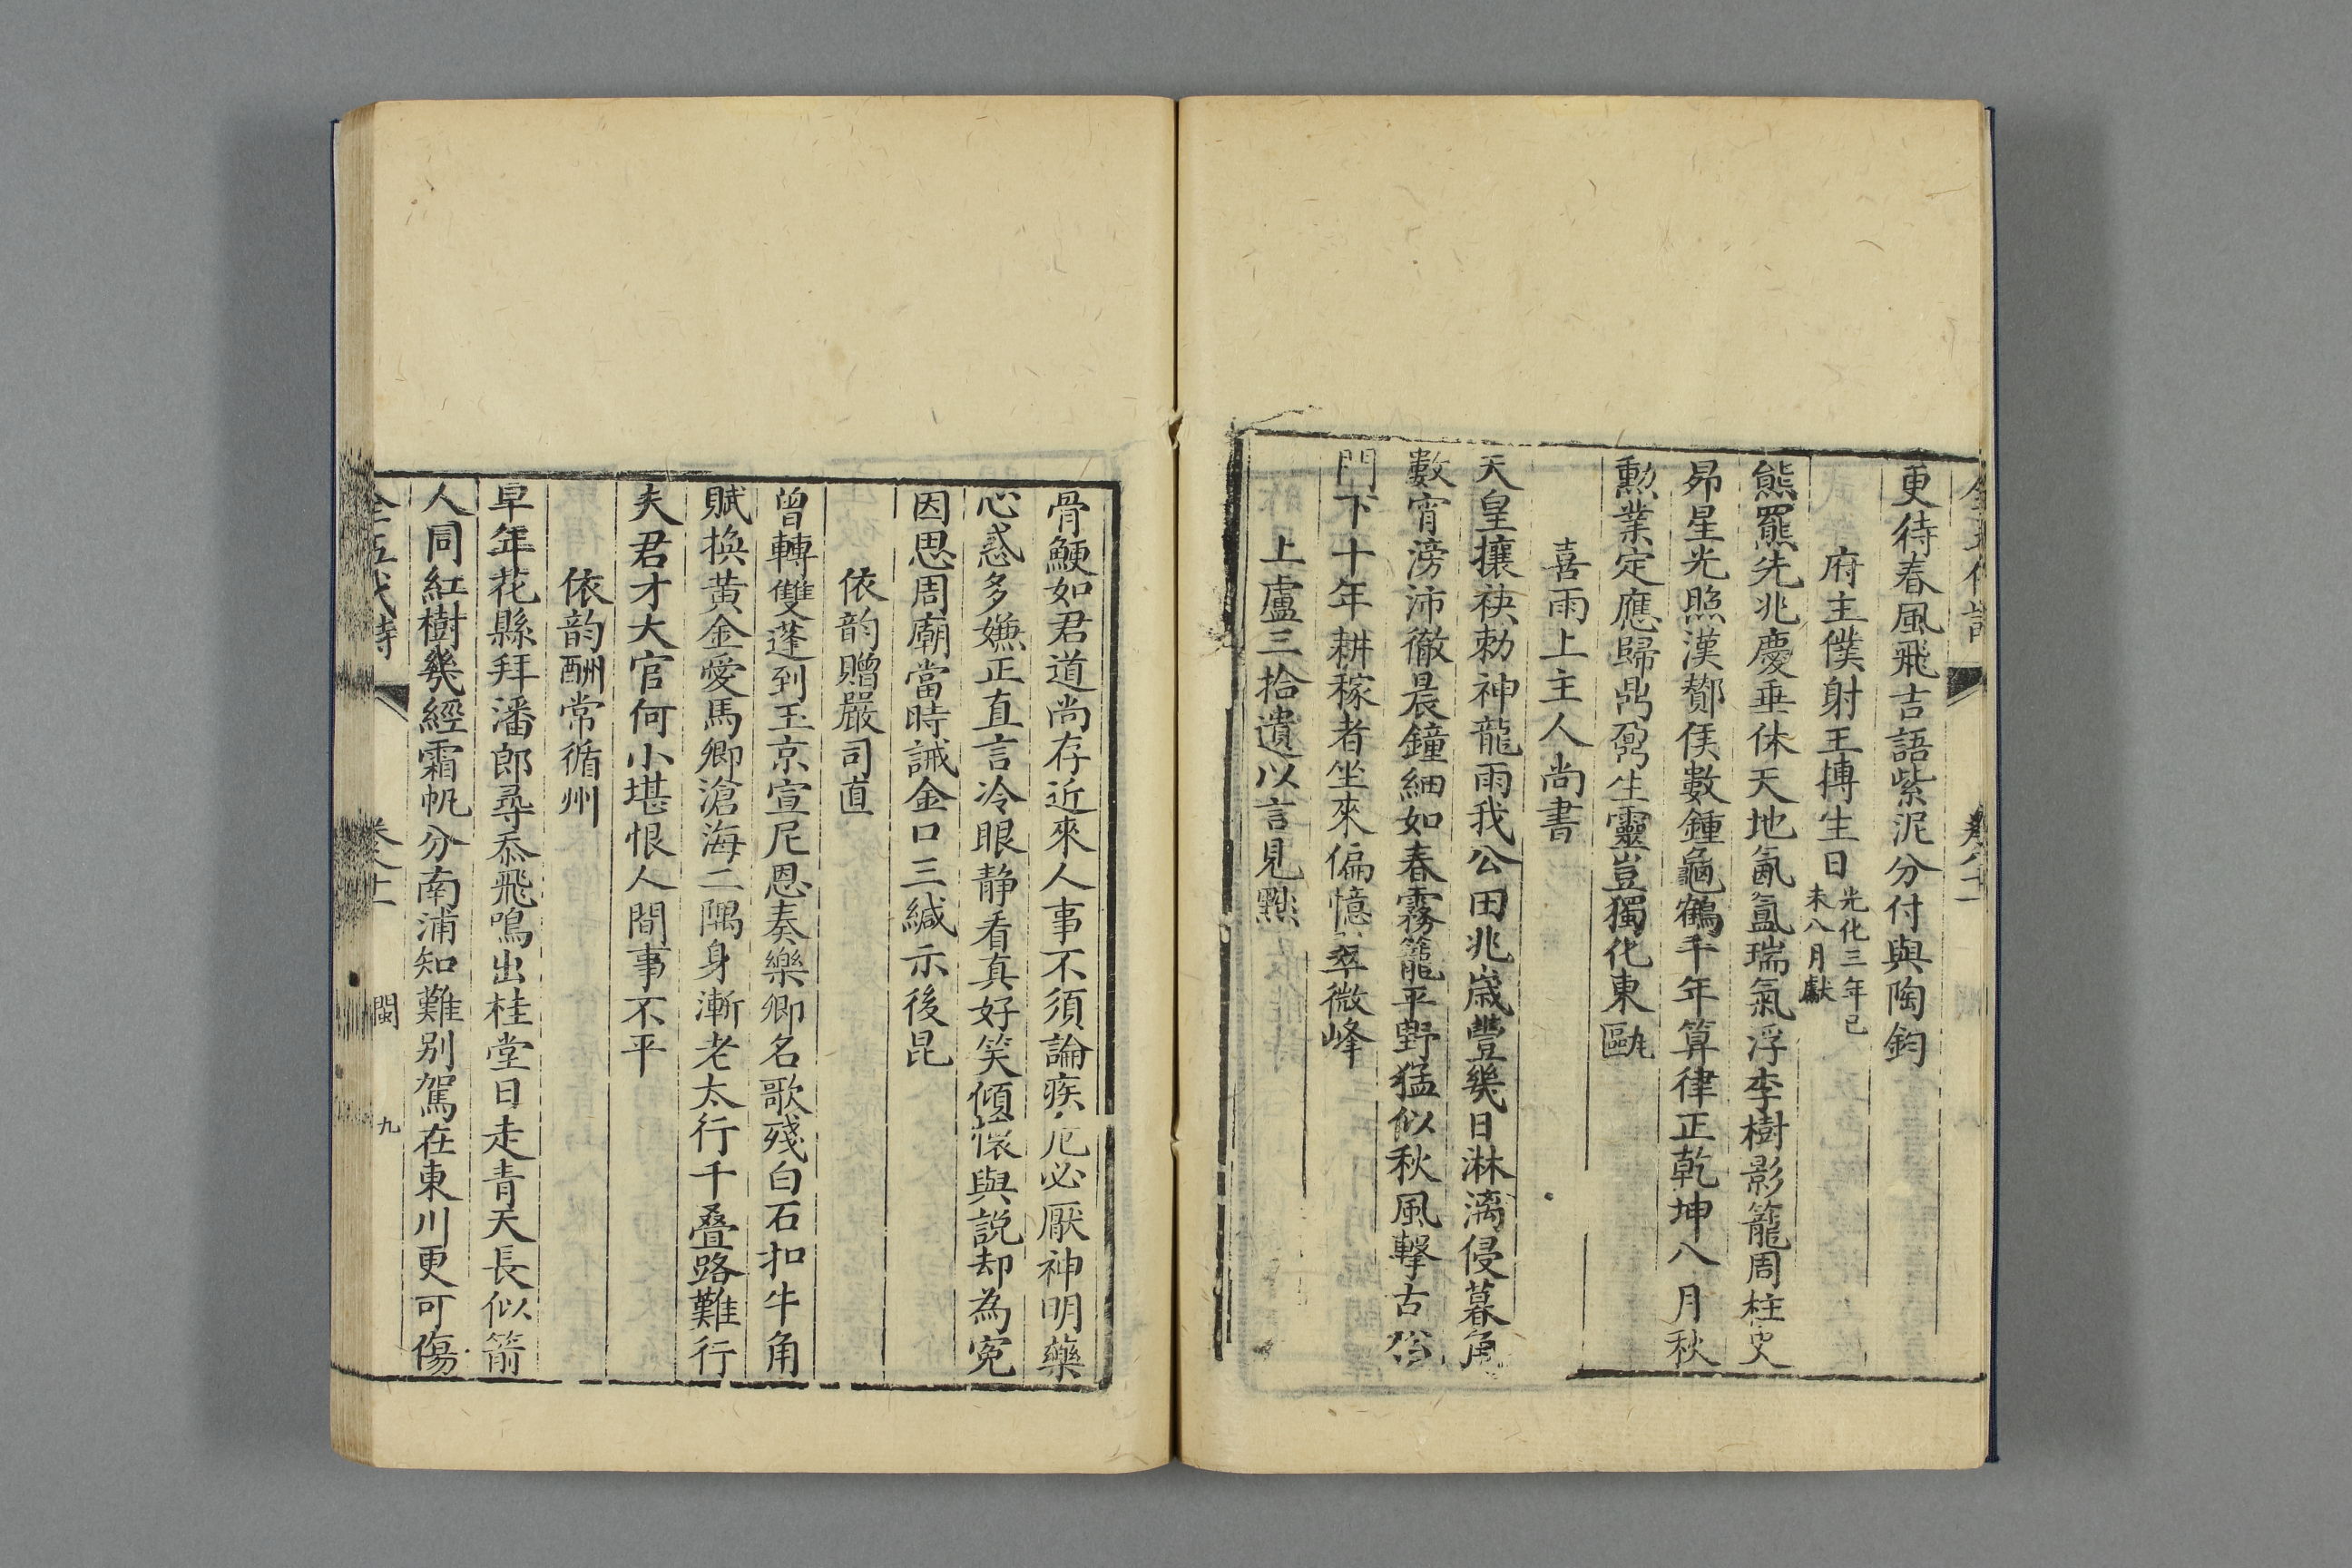 更待春風飛吉語紫泥分付與陶鈞
府主僕射王摶生日光化三年已
未八月獻
熊羆先兆慶垂休天地氤氳瑞氣浮李樹影籠周柱史
昴星光照漢酇侯數鍾龜鶴千年算律正乾坤八月秋
勲業定應歸鼎鼐生靈豈獨化東甌
喜雨上主人尚書
天皇攘袂勅神龍雨我公田兆歲豐幾日淋漓侵暮角
數宵滂沛徹晨鐘細如春霧籠平野猛似秋風擊古松
門下十年耕稼者坐來偏憶翠微峰
上盧三拾遺以言見黜
骨鯁如君道尚存近來人事不須論疾危必厭神明藥
心惑多嫌正直言冷眼静看真好笑傾懷與説却為寃
因思周廟當時誡金口三緘示後昆
依韵贈嚴司直
曾轉雙蓬到玉京宣尼恩奏樂卿名歌殘白石扣牛角
賦換黄金愛馬卿滄海二隅身漸老太行千疊路難行
夫君才大官何小堪恨人間事不平
依韵酬常循州
早年花縣拜潘郎尋忝飛鳴出桂堂日走青天長似箭
人同紅樹幾經霜帆分南浦知難别駕在東川更可傷
全五代詩 卷八十一 閩 九